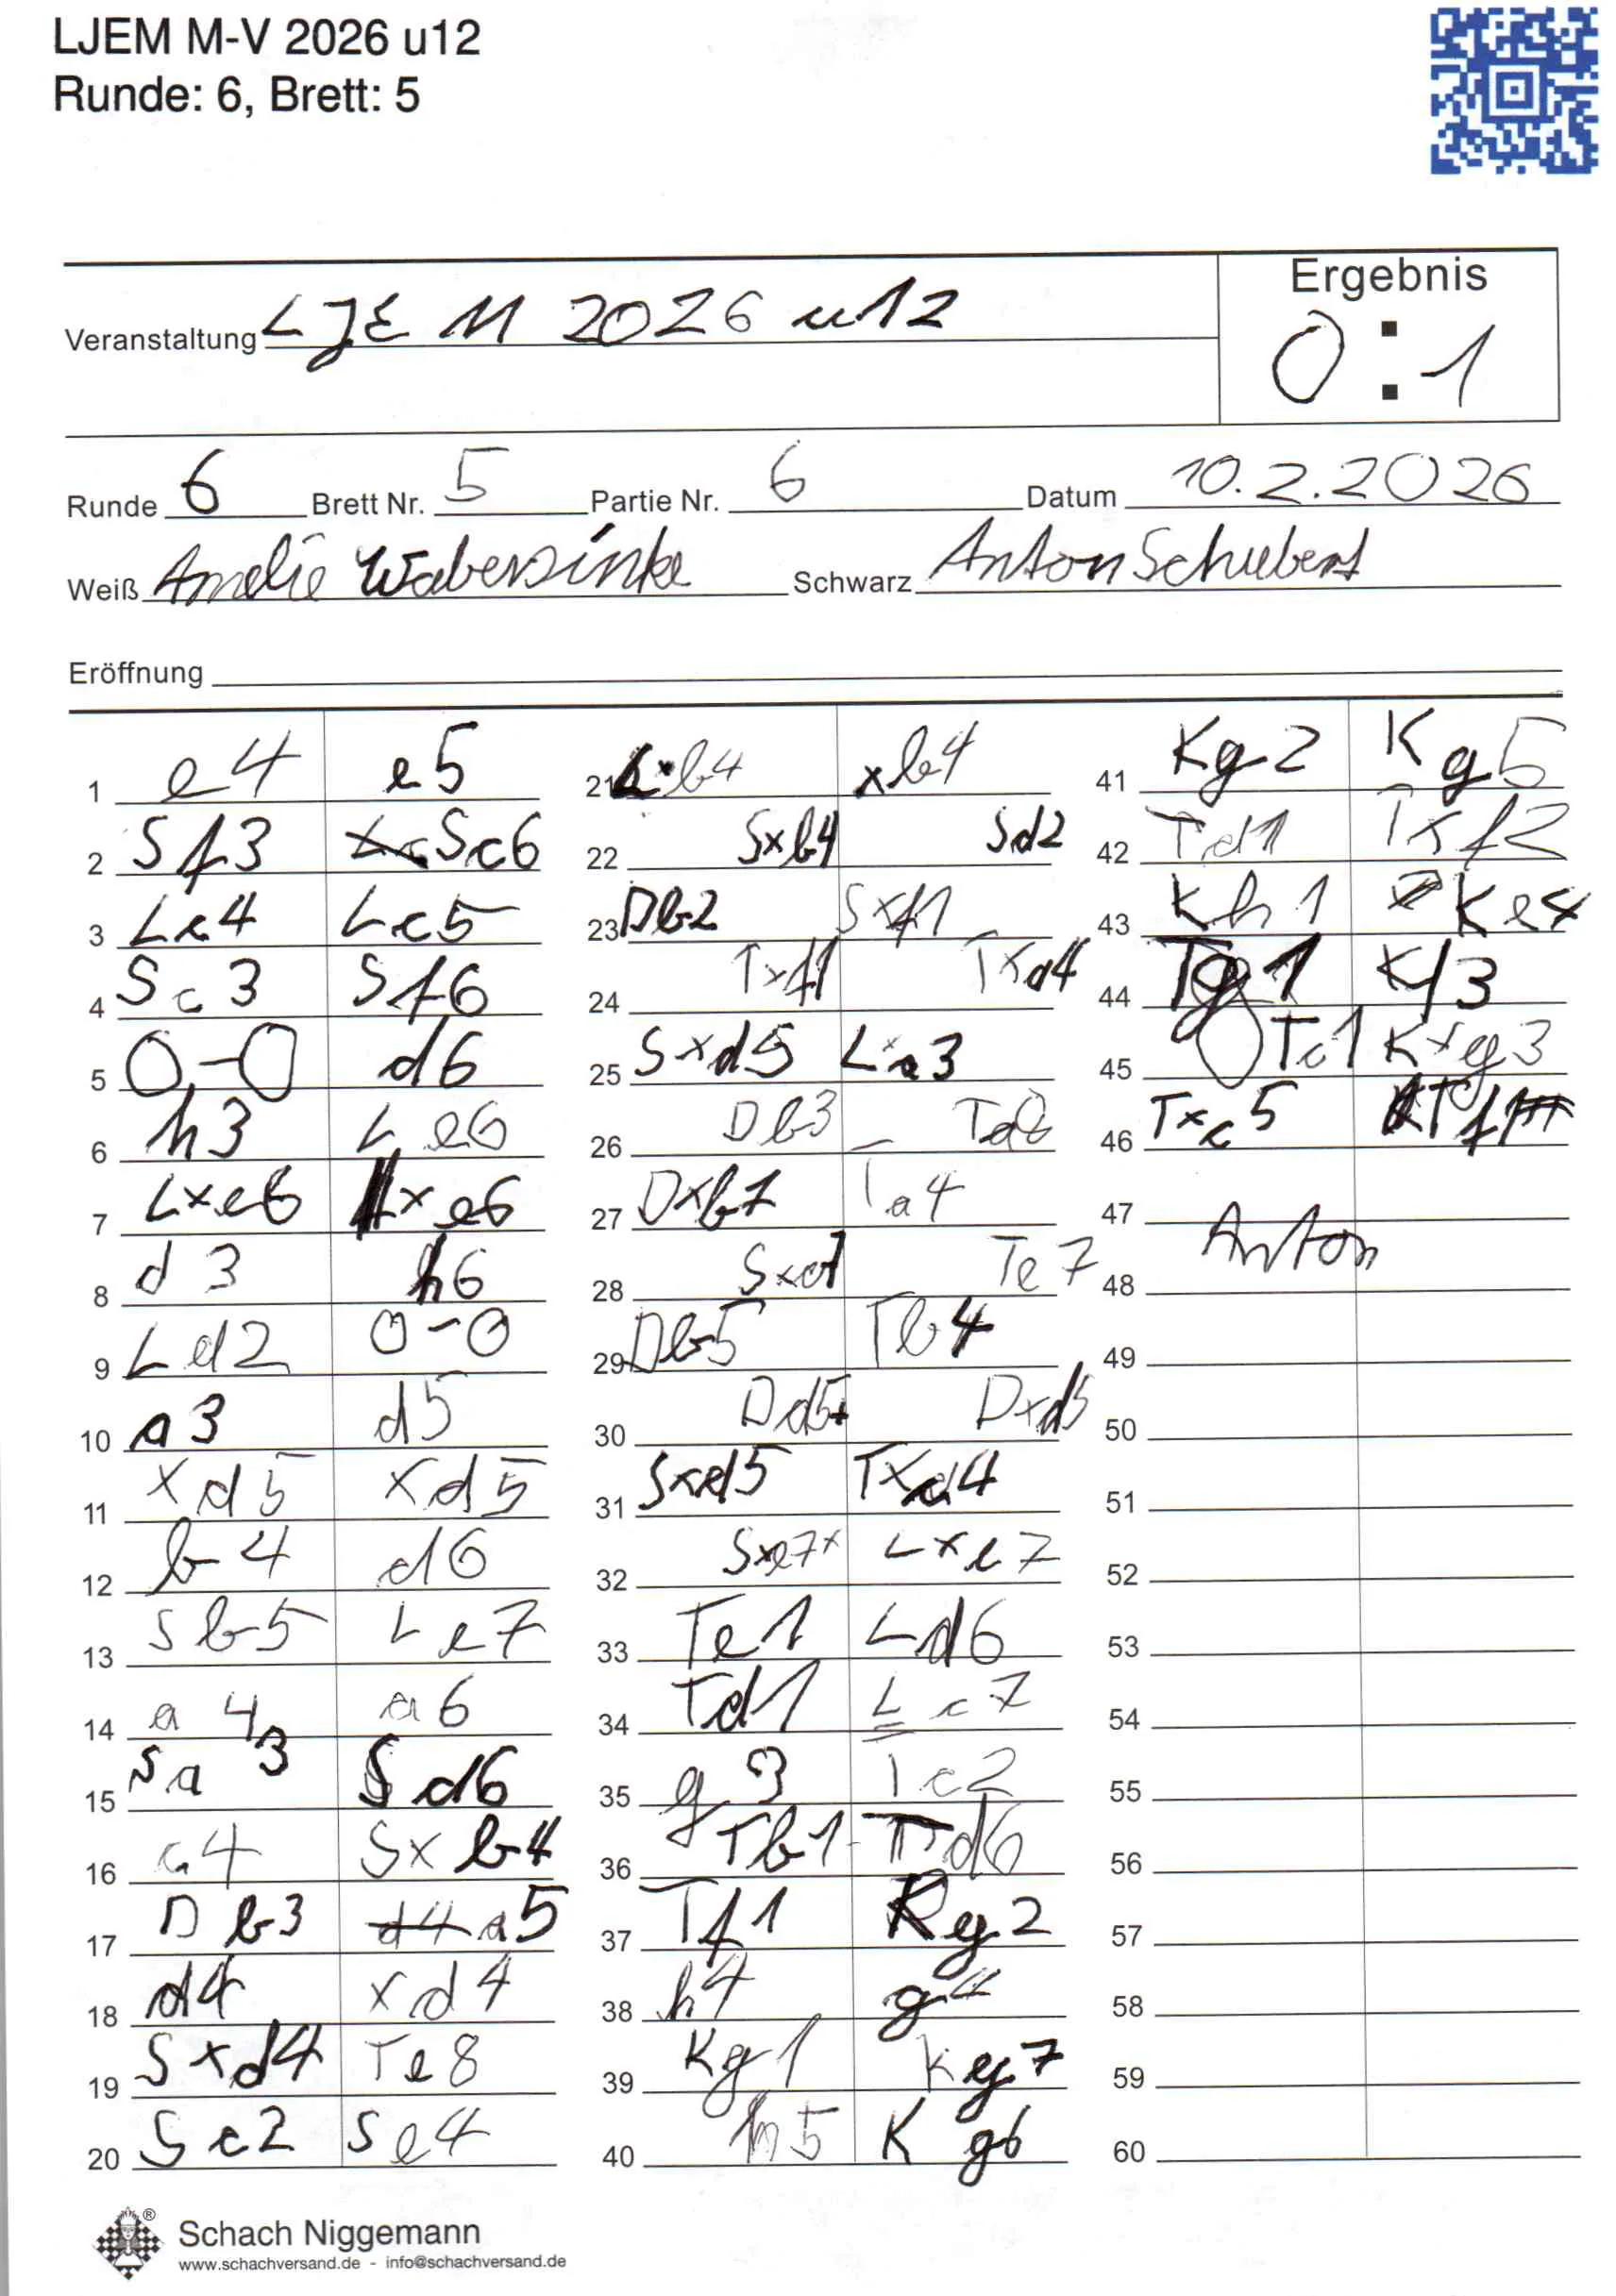 LJEM M-V 2026 u12
Runde: 6, Brett: 5
Ergebnis
Veranstaltung LJEM 2026 u12
0:1
Runde 6 Brett Nr. 5 Partie Nr. 6 Datum 10.2.2026
Weiß Amelie Wabersinke Schwarz Anton Schubert
Eröffnung
1 e4 e5
2 Sf3 Sc6
3 Lc4 Lc5
4 Sc3 Sf6
5 0-0 d6
6 h3 Le6
7 Lxe6 xe6
8 d3 h6
9 Ld2 0-0
10 a3 d5
11 xd5 xd5
12 b4 d6
13 Sb5 Le7
14 a4 a6
15 Sa3 Sd6
16 c4 Sxb4
17 Db3 a5
18 d4 xd4
19 Sxd4 Te8
20 Sc2 Se4
21 Lxb4 xb4
22 Sxb4 Sd2
23 Db2 Sxf1
24 Txf1 Txa4
25 Sxd5 Lxa3
26 Db3
27 Dxb7 Ta4
28 Sxc7 Te7
29 Db5 Tb4
30 Dd5+ Dxd5
31 Sxd5 Txc4
32 Sxe7+ Lxe7
33 Te1 Ld6
34 Td1 Lc7
35 g3 Tc2
36 Tb1 Td6
37 Tf1 Kg2
38 h4 g4
39 Kg1 Kg7
40 h5 Kg6
41 Kg2 Kg5
42 Td1 Txf2
43 Kh1 Ke4
44 Tg1 Kf3
45 Tc1 Kxg3
46 Txc5 Tf1#
47
48 Anton
49
50
51
52
53
54
55
56
57
58
59
60
Schach Niggemann
www.schachversand.de - info@schachversand.de